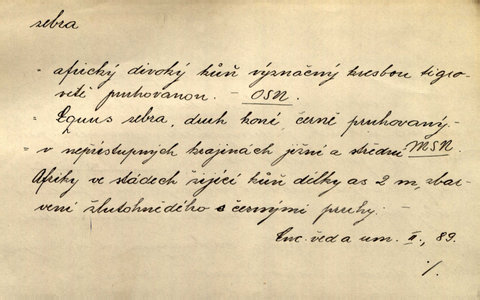 zebra
- africký divoký kůň význačný kresbou tigro-
vitě pruhovanou. - OSN.
- Equus zebra, druh koně, černě pruhovaný -
- v nepřístupných krajinách jižní a střední MSN.
Afriky ve stádech žijící kůň délky as 2 m, zbar-
vení žlutohnědého s černými pruhy. -
Enc. věd a um. II., 89.
·/.